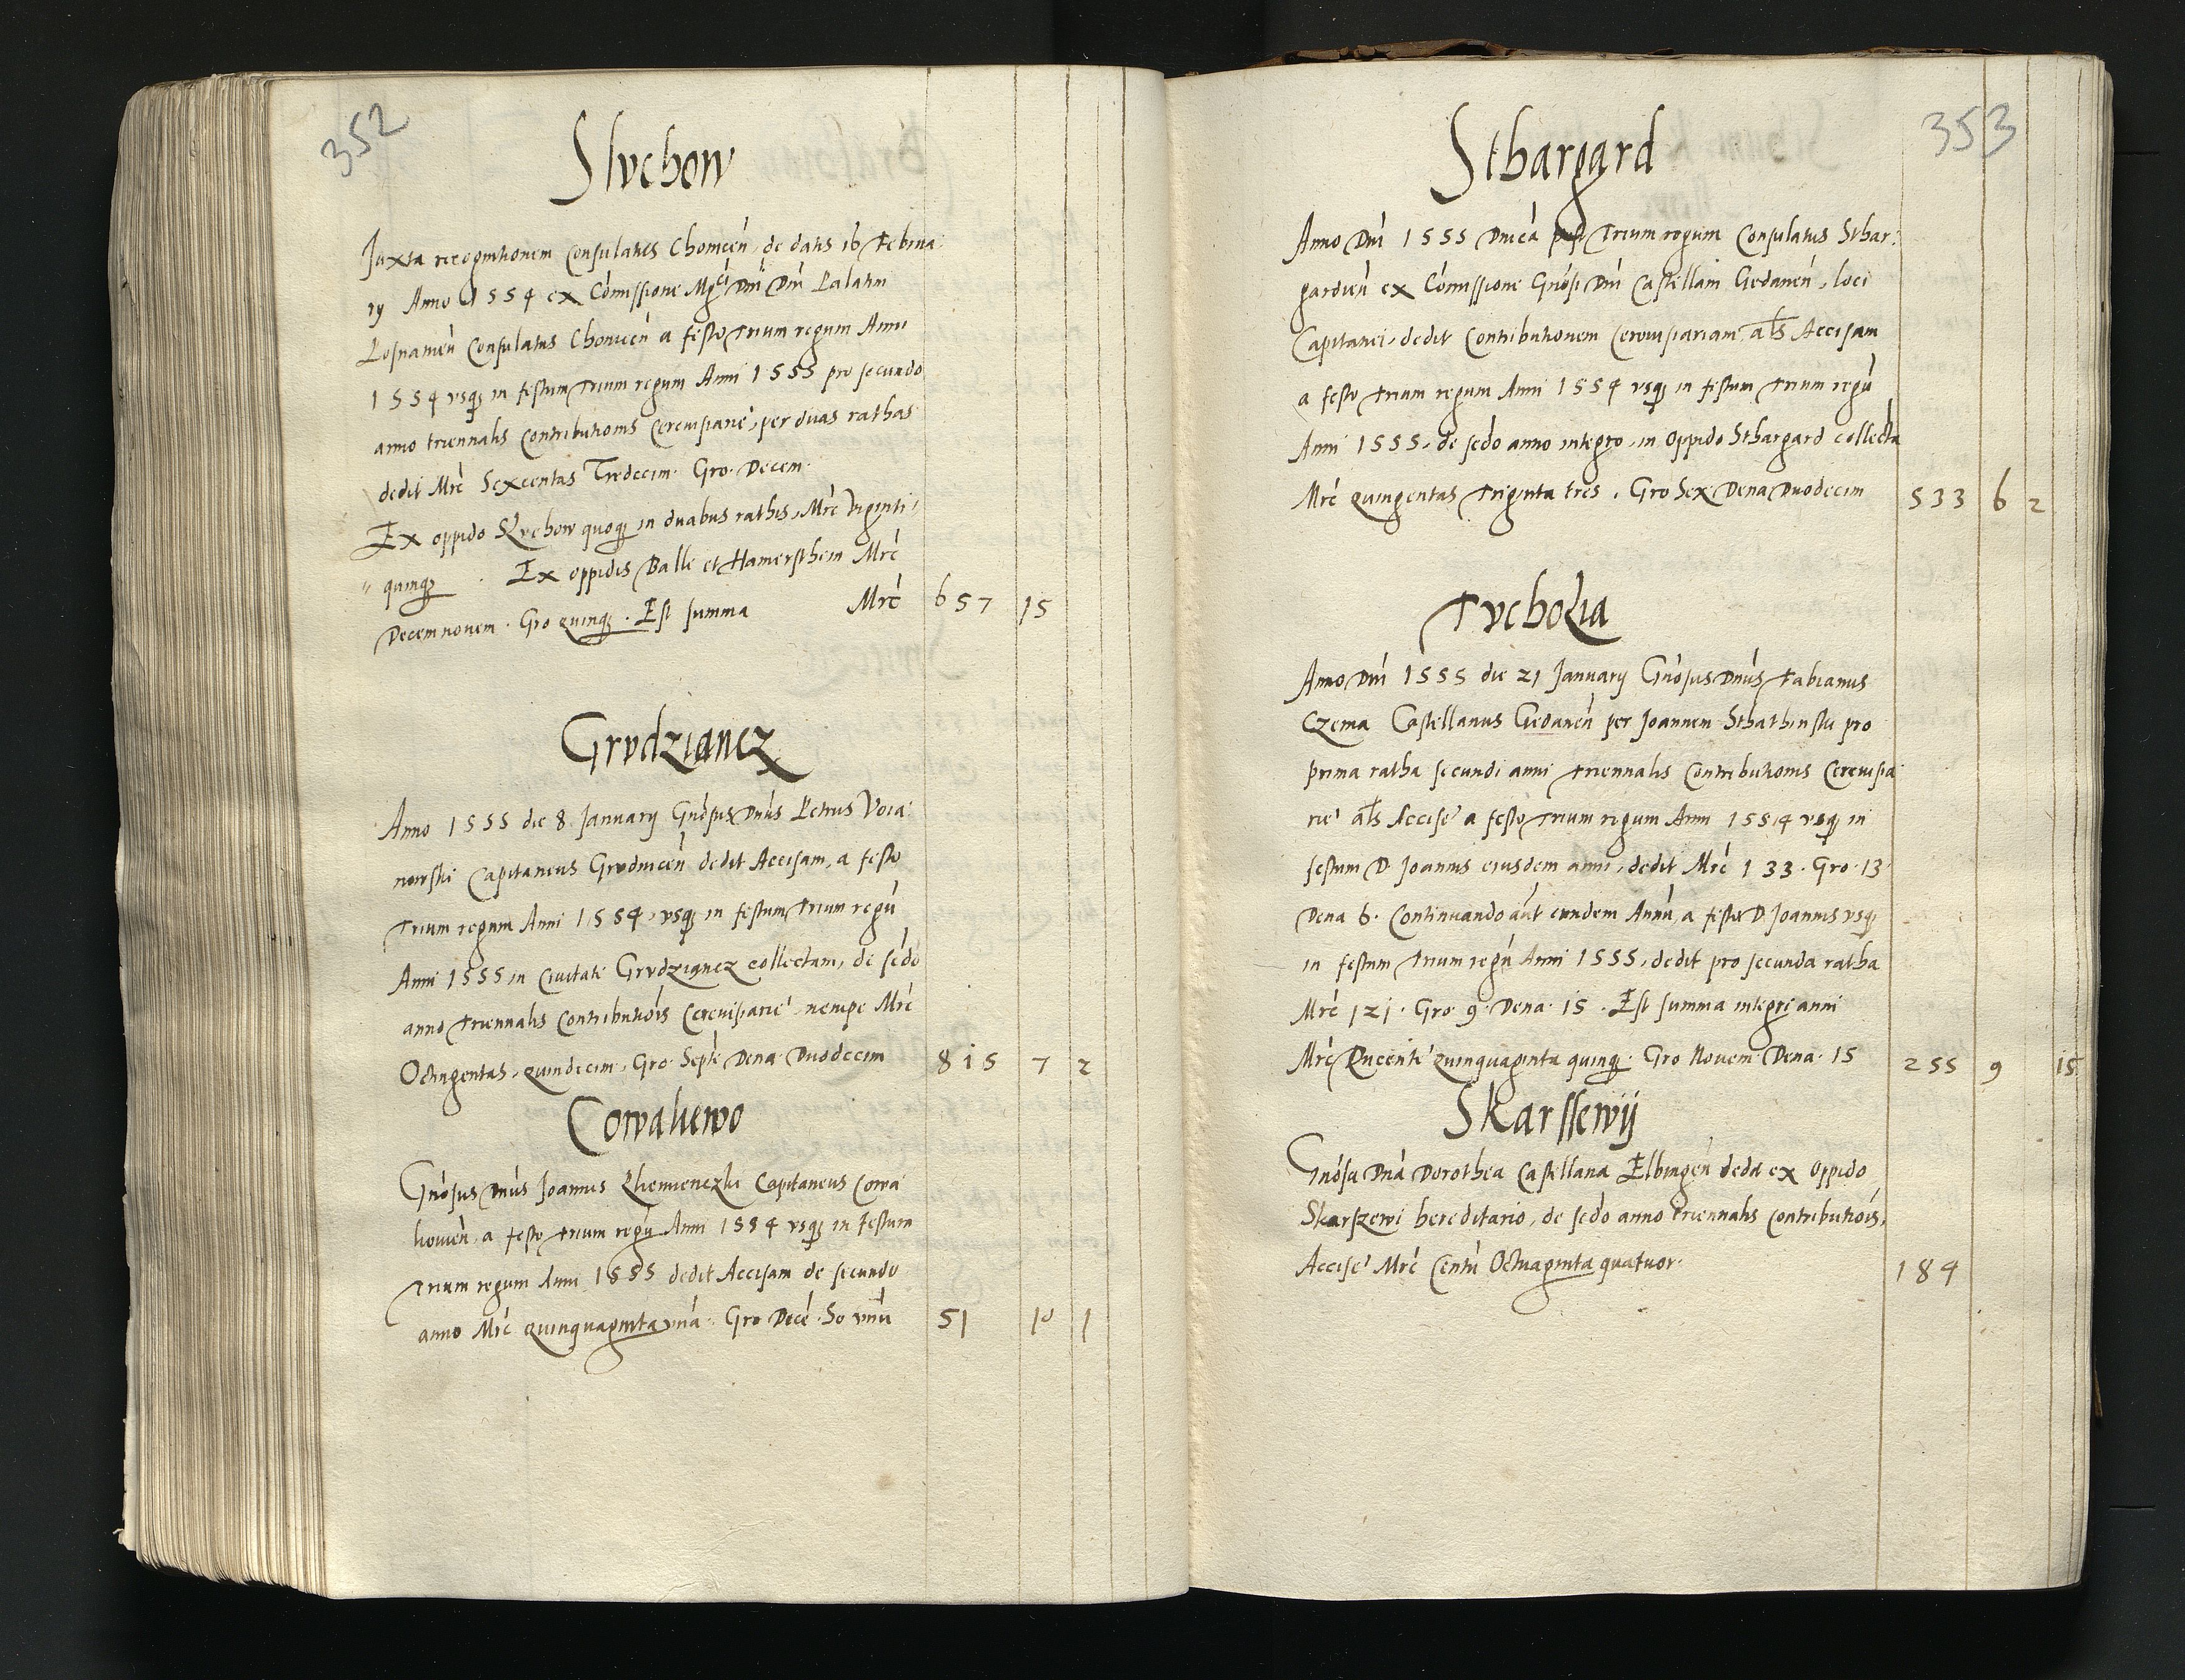 352
Slvchow
Juxta recognitionem Consulatus Choinicen̄, de datis 16 Februa:
rÿ Anno 1554 ex Com̄issione Mgci Dn̄i Dn̄i Palatin
Posnanien̄ Consulatus Choinicen̄ a festo Trium regum Anni
1554 vsqȝ in festum Trium regum Anni 1555 pro secundo
anno triennalis Contributionis Cereuisiarie, per duas rathas
dedit Mrc̄ Sexcentas Tredecim. Gro. Decem.
Ex oppido Slvchow quoqȝ in duabus rathis, Mrc̄ Viginti
quinqȝ . Ex oppidis Balle et Hamersthein Mrc̄
Decemnouem. Gro quinqȝ. Est summa Mrc̄ 657 15
Grvdziancz
Anno 1555 die 8 Januarÿ Gn̄osus Dn̄us Petrus Voia:
nowski Capitaneus Grvdnicen̄ dedit Accisam, a festo
Trium regum Anni 1554, vsqȝ in festum Trium regū
Anni 1555 in Ciuitate Grvdziancz collectam, de sc̄do
anno Triennalis Contributiōis Cereuisiarie nempe Mrc̄
Octingentas, quindecim, Gro. Septē Dena Duodecim 815 7 2
Cowalewo
Gn̄osus Dn̄us Joannes Dzienienczki Capitaneus Cowa
lieuien̄, a festo Trium regū Anni 1554 vsqȝ in festum
Trium regum Anni 1555 dedit Accisam de secundo
anno Mrc̄ quinquaginta vnā. Gro Decē. So vnū 51 10 1
353
Sthargard
Anno Dn̄i 1555 Dn̄ica post Trium regum Consulatus Sthar:
gardien̄ ex Com̄issione Gn̄osi Dn̄i Castellani Gedanen̄, loci
Capitanei, dedit Contributionem Cereuisiariam al̄s Accisam
a festo Trium regum Anni 1554 vsqȝ in festum Trium regū
Anni 1555, de sc̄do anno integro, in Oppido Sthargard collecta
Mrc̄ quingentas Triginta tres. Gro Sex Dena Duodecim 533 6 2
Tvcholia
Anno Dn̄i 1555 die 21 Januarÿ Gn̄osus Dn̄us Fabianus
Czema Castellanus Gedanen̄ per Joannem Sthathinski pro
prima ratha secundi anni Triennalis Contributionis Cereuisia
rie al̄s Accise a festo Trium regum Anni 1554 vsqȝ in
festum D. Joannis eiusdem anni, dedit Mrc̄ 133. Gro. 13.
Dena 6. Continuando aūt eundem Annū, a festo D. Joannis vsqȝ
in festum Trium regū Anni 1555, dedit pro secunda ratha
Mrc̄ 121. Gro. 9. Dena. 15. Est summa integri anni
Mrc̄ Ducente quinquaginta quinqȝ. Gro Nouem. Dena. 15 255 9 15
Skarssewÿ
Gn̄osa Dn̄a Dorothea Castellana Elbingen̄ dedit ex Oppido
Skarszewi hereditario, de sc̄do anno Triennalis Contributiōis,
Accise Mrc̄ Centū Octuaginta quatuor. 184